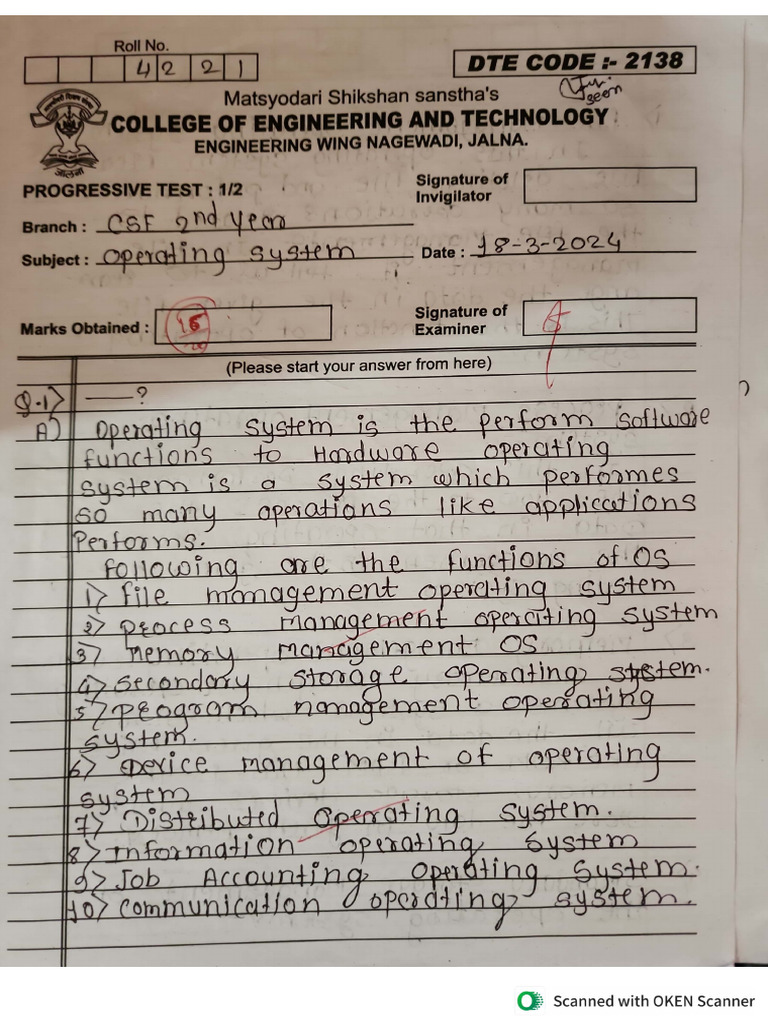 Roll No.
4 2 2 1
DTE CODE :- 2138
seen
Matsyodari Shikshan sanstha's
COLLEGE OF ENGINEERING AND TECHNOLOGY
ENGINEERING WING NAGEWADI, JALNA.
PROGRESSIVE TEST : 1/2
Signature of Invigilator
Branch : CSE 2nd Year
Subject : Operating system
Date : 18-3-2024
Marks Obtained : 15/20
Signature of Examiner
(Please start your answer from here)
Q.1) —— ?
A) Operating system is the perform software
functions to Hardware operating
system is a system which performes
so many operations like applications
Performs.
Following are the functions of OS
1) file management operating system
2) Process management operating system
3) Memory management OS
4) Secondary storage operating system.
5) Program management operating
system.
6) Device management of operating
system
7) Distributed operating system.
8) Information operating system
9) Job Accounting operating system.
10) communication operating system.
Scanned with OKEN Scanner